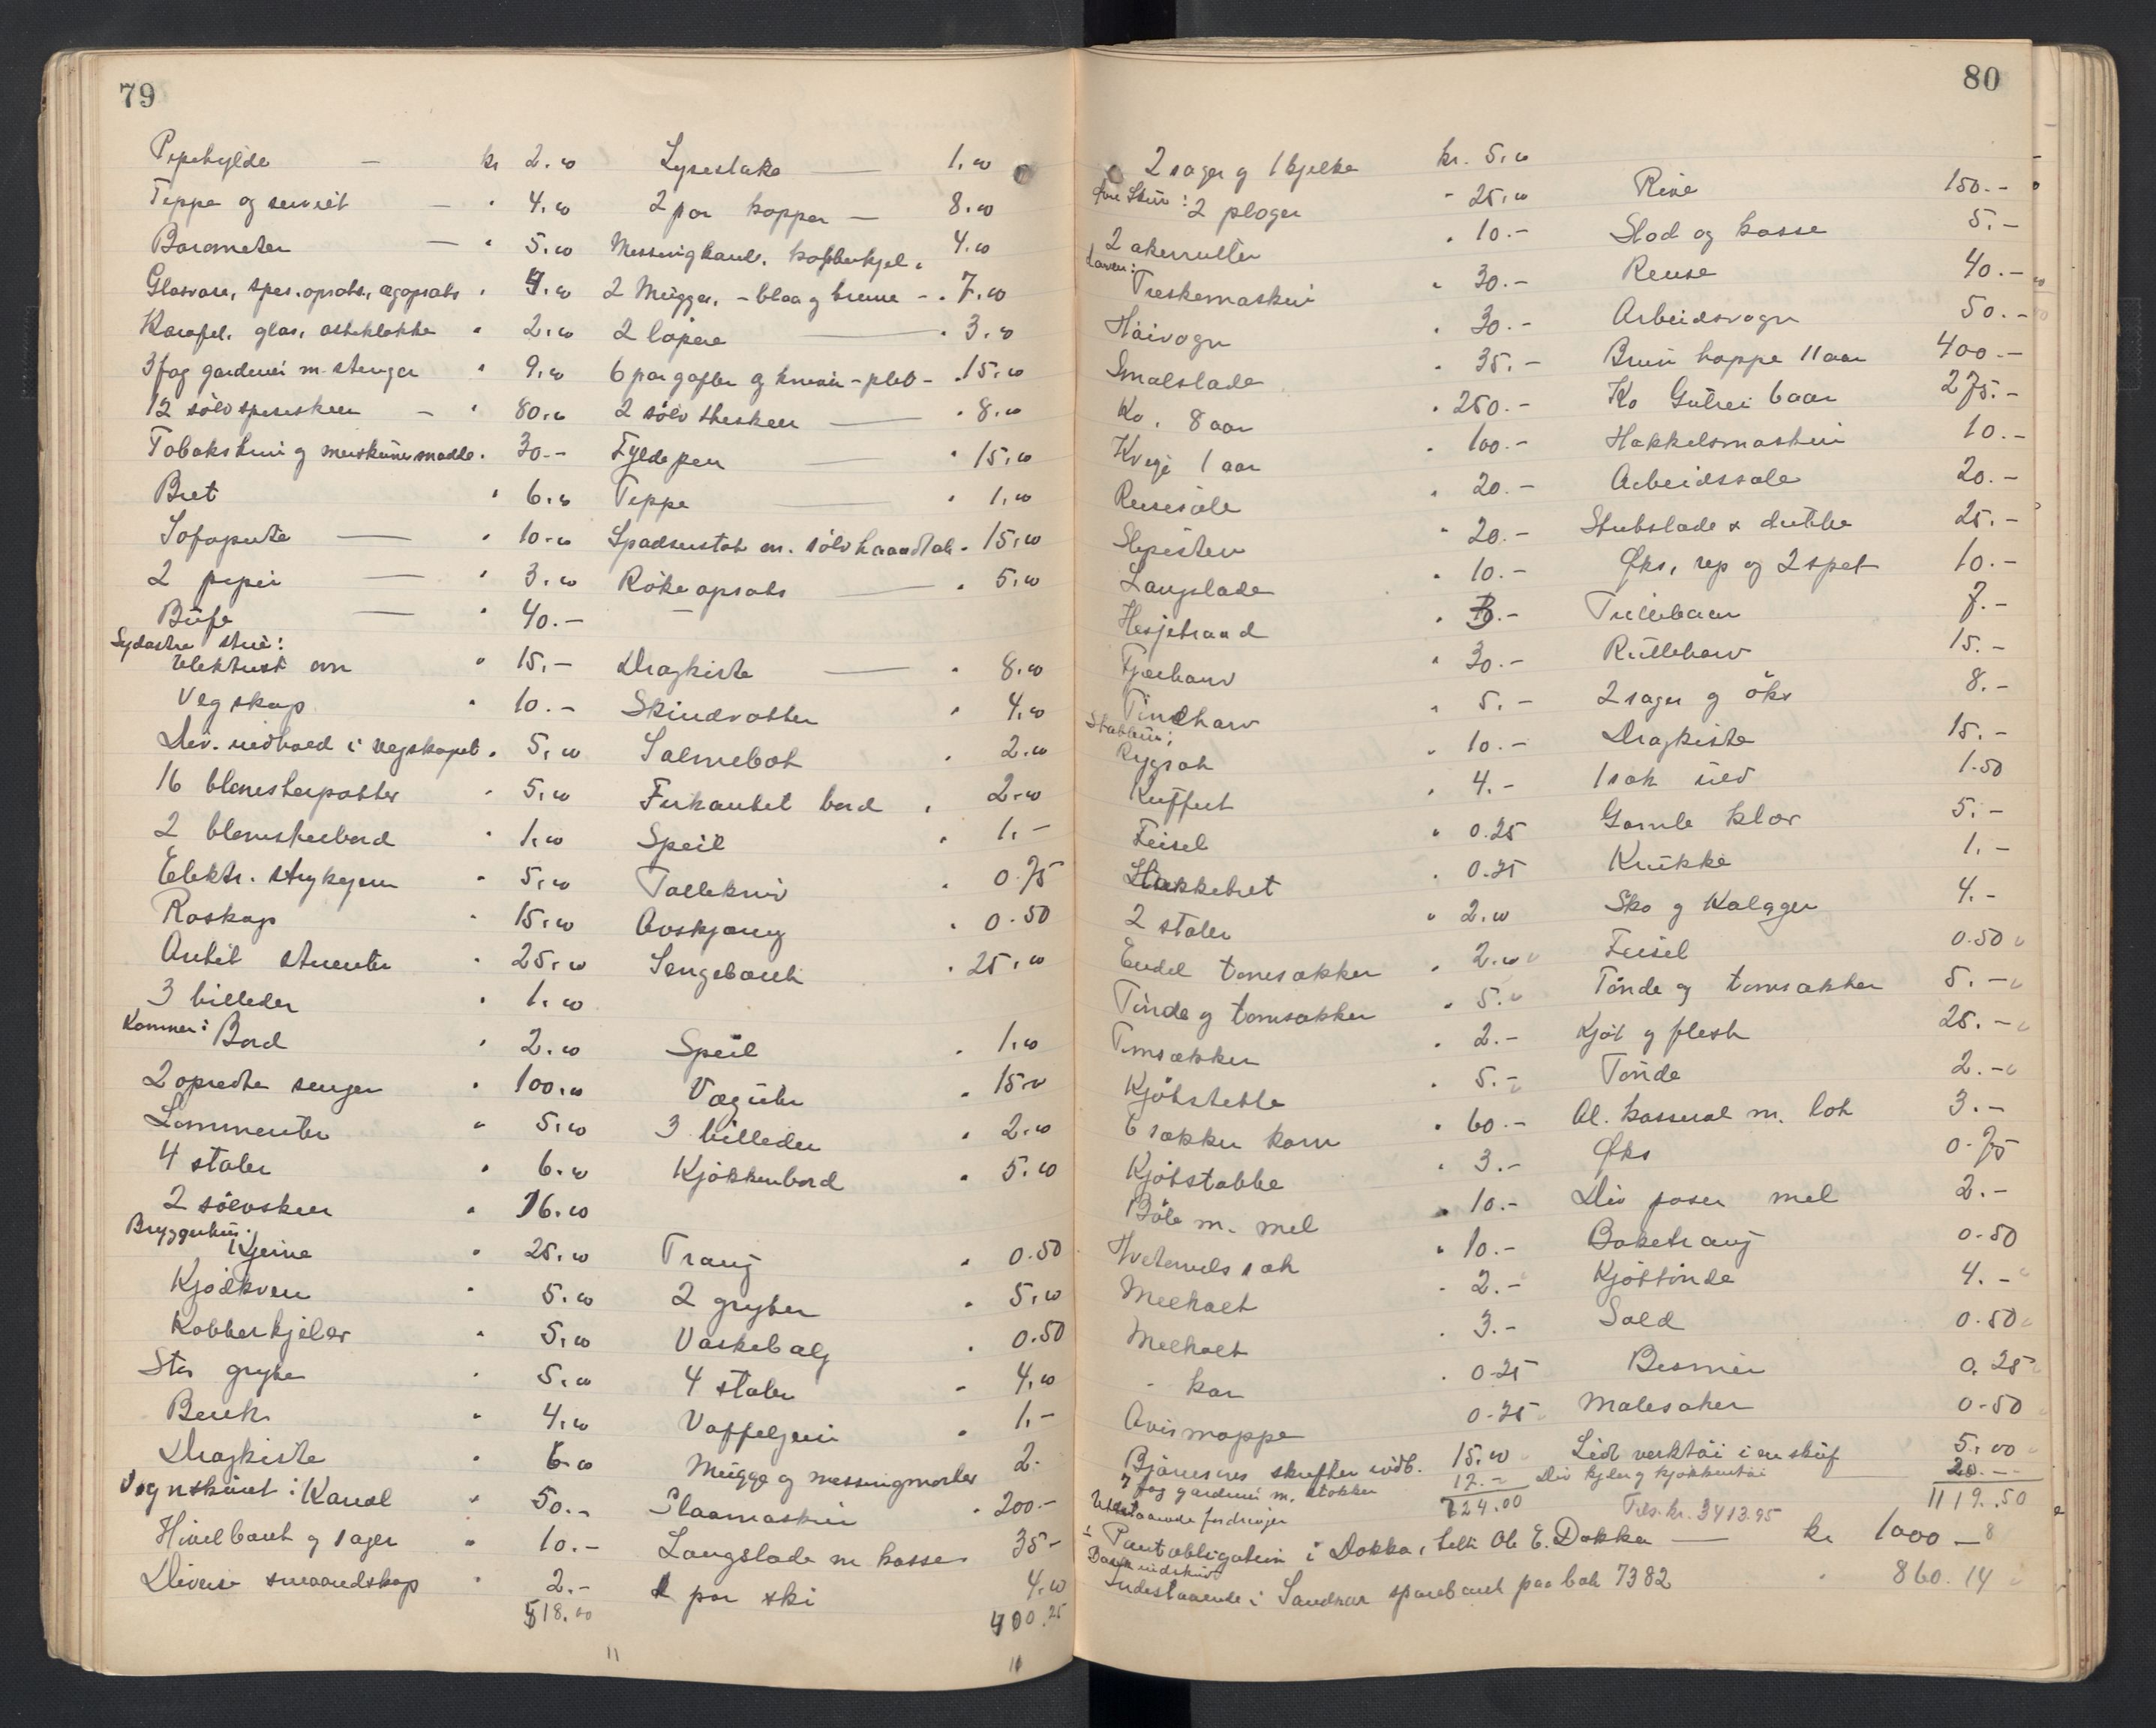 79
Pipehylde — kr 2.00 Lysestake — 1.00
Teppe og serviet — " 4.00 2 par kopper — 8.00
Barometer — " 5.00 Messingkand. kobberkjel. 4.00
Glasvase, spis.opsats., ægopsats " 4.00 2 Mugger, - blaa og brune - " 7.00
Karafel, glas, osteklokke " 2.00 2 løpere — " 3.00
3 fag gardiner m. stenger " 9.00 6 par gafler og kniver - plet - " 15.00
12 sölvspiseskeer — " 80.00 2 sölv theskeer — " 8.00
Tobakskrin og merskumsmadle " 30.- Fyldepen — " 15.00
Bret " 6.00 Teppe — " 1.00
Sofapute — " 10.00 Spadserstok m. sölvhaandtak " 15.00
2 piper — " 3.00 Rökeopsats — " 5.00
Büfe — " 40.- —
Sydøstre stue:
Elektrisk ovn " 15.- Dragkiste — " 8.00
Vegskap " 10.- Skindvotter " 4.00
Div. indhold i vegskapet " 5.00 Salmebok " 2.00
16 blomsterpotter " 5.00 Firkantet bord " 2.00
2 blomsterbord " 1.00 Speil " 1.-
Elektr. strykejern " 5.00 Tollekniv " 0.75
Roskap " 15.00 Avskjøring " 0.50
Antik stueuhr " 25.00 Sengebænk " 25.00
3 billeder " 1.00
Kammer: Bord " 2.00 Speil " 1.00
2 opredte senger " 100.00 Væguhr " 15.00
Lommeuhr " 5.00 3 billeder " 2.00
4 stoler " 6.00 Kjökkenbord " 5.00
2 sölvskeer " 16.00
Bryggerhus:
Kjerne " 25.00 Traug " 0.50
Kjödkvern " 5.00 2 gryter " 5.00
Kobberkjeler " 5.00 Vaskebalg " 0.50
Stor gryte " 5.00 4 stoler " 4.00
Benk " 4.00 Vaffeljern " 1.-
Dragkiste " 6.00 Mugge og messingmorter 2.-
Vognskjul: Kanal " 50.- Slaamaskin " 200.-
Hövelbenk og sager " 10.- Langslæde m kasse 35-
Diverse smaaredskap " 2.- 1 par ski 4.00
518.00 400.25
80
2 sager og 1 kjelke kr. 5.00
2 ploger " 25.00 Rive 150.-
2 akerruller " 10.- Slod og kasse 5.-
Laaven: Treskemaskin " 30.- Reuse 40.-
Höivogn " 30.- Arbeidsvogn 50.-
Smalslæde " 35.- Brun hoppe 11 aar 400.-
Ko. 8 aar " 250.- Ko Gulrei 6 aar 275.-
Kvige 1 aar " 100.- Hakkelsmaskin 10.-
Reisesæle " 20.- Arbeidssæle 20.-
Slipesten " 20.- Stubslæde & dukke 25.-
Langslæde " 10.- Øks, rep og 2 spet 10.-
Hesjetraad " .- Trillebaar 7.-
Fjærharv " 30.- Rulleharv 15.-
Tindharv " 5.- 2 sager og öks 8.-
Stabbur:
Rygsæk " 10.- Dragkiste 15.-
Kuffert " 4.- 1 sæk uld 1.50
Feisel " 0.25 Gamle klær 5.-
Hakkebret " 0.25 Krukke 1.-
2 stoler " 2.00 Sko og Kalosjer 4.-
Endel tomsækker " 2.00 Feisel 0.50
Tönde og tomsækker " 5.- Tönde og tomsækker 5.-
Tomsækker " 2.- Kjöt og flesk 25.-
Kjötstelle " 5.- Tönde 2.-
6 sækker korn " 60.- Al. kasserol m. lok 3.-
Kjötstabbe " 3.- Øks 0.75
Böle m. mel " 10.- Div poser mel 2.-
Hvetemels sæk " 10.- Baketraug 0.50
Melholt " 2.- Kjöttönde 4.-
Melholt " 3.- Sold 0.50
" kar " 0.25 Bismer 0.25
Avismappe 0.25 Malesaker 0.50
Björnsons skrifter indb. 15.00 Lidt verktöi i en skuf 5.00
7 fag gardiner m. stokker 12.- Div kjeler og kjökkentöi 20.-
724.00 Tils. kr. 3413.95 1119.50
Utestaaende fordringer
1 Pantobligation i Dokka, tilh. Ole E. Dokka — kr 1000 —
Bankindskud
Indestaaende i Sandsvær sparebank paa bok 7382 " 860.14